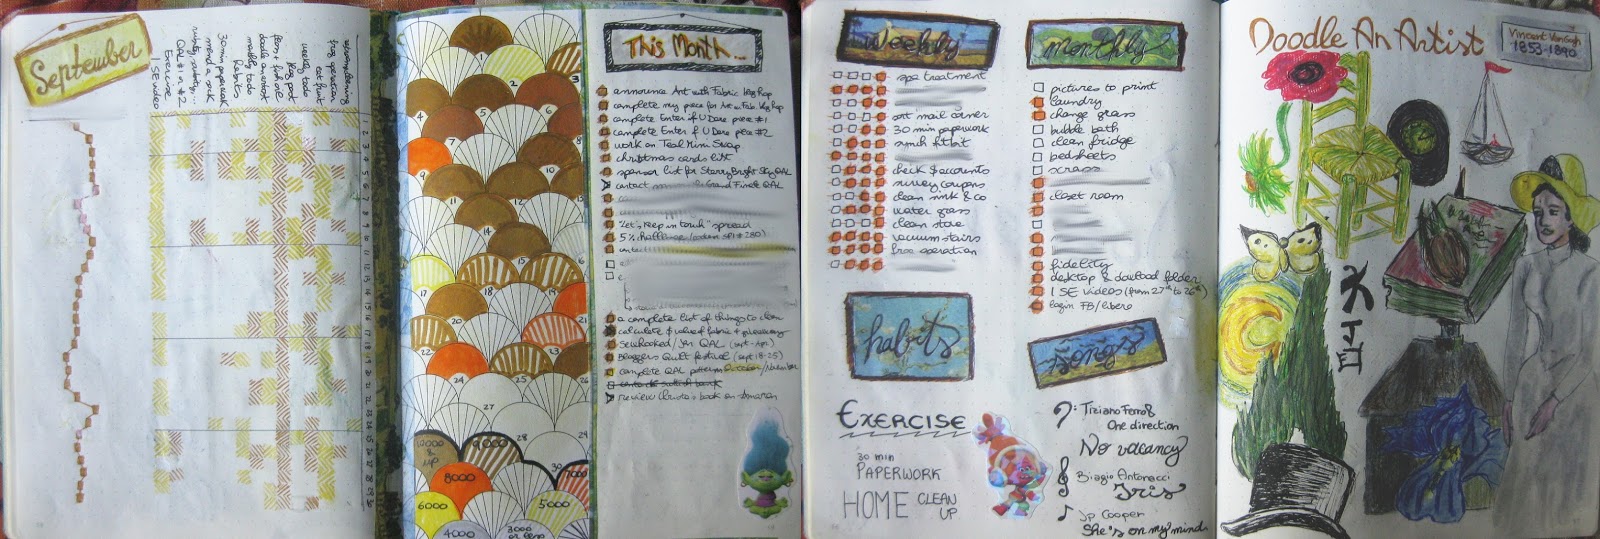 September
cat hunt
weekly to do
blog post
fears + fashions
doodle an artist
monthly to do
habits
30 min paperwork
mend a sock
QAL #1 n° #2
Exercise
1 SE video
1
2
4
5
7
8
9
10
12
14
15
17
18
19
20
21
22
23
24
25
26
27
28
29
30
10000
& up
9000
8000
7000
6000
5000
4000
3000
or less
This Month...
announce Art with Fabric blog hop
complete my piece for Art w Fab. blog hop
complete Enter if U Dare piece #1
complete Enter if U Dare piece #2
work on Teal Mini Swap
christmas cards list
sponsor list for StarryBright Sky QAL
contact Grand Finale QAL
"let's keep in touch" spread
5% challenge
a complete list of things to clean
calculate $ value of fabric + giveaway
SewHooked / Jen QAL (sept - Apr.)
Bloggers Quilt Festival (sept 18-25)
complete QAL pattern October/November
review Chris's book on Amazon
weekly
spa treatment
art mail corner
30 min paperwork
synch fitbit
check $ accounts
survey coupons
clean milk & co
water grass
clean stove
vacuum stairs
free operation
habits
EXERCISE
30 min
PAPERWORK
HOME CLEAN
UP
monthly
pictures to print
laundry
change grass
bubble bath
clean fridge
bedsheets
scrass
closet room
fidelity
desktop & download folder
1 SE videos (from 27th to 26th)
login FB/libero
songs
Tiziano Ferro &
One direction
No vacancy
Biagio Antonacci
Iris
Jp Cooper
She's on my mind
Doodle An Artist
Vincent VanGogh
1853-1890